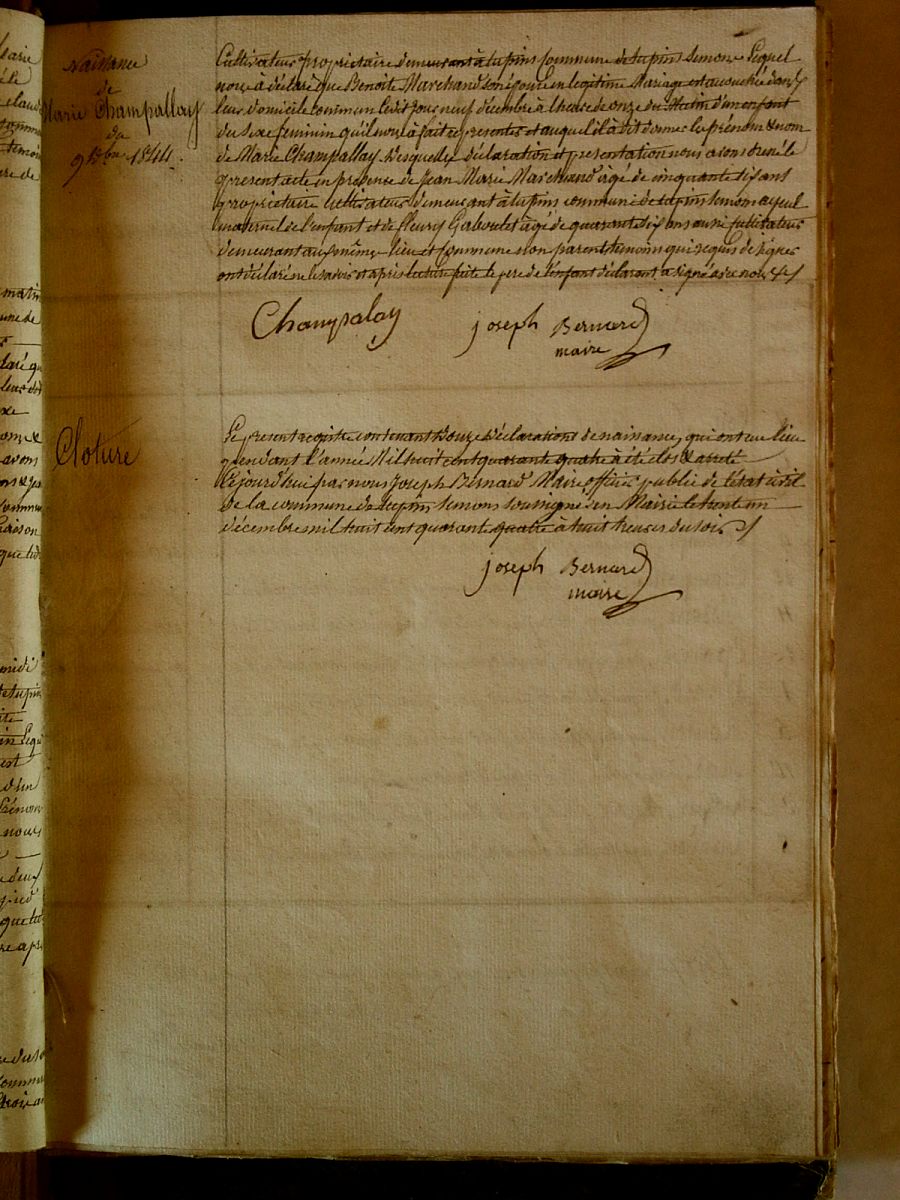 Naissance
de
Marie Champallay
du
9 Xbre 1844.
Cultivateur propriétaire demeurant à tupins Commune de tupins Semons Lequel
nous à déclaré que Benoîte Marchand son épouse en legitime Mariage est accouchée dans
leur domicile commun Ledit Jour neuf décembre à lheure de onze du Matin d'un enfant
du Sexe feminin qu'il nous à fait représenter et auquel il à dit donner le prénom & nom
de Marie Champallay Desquelles déclaration et présentation nous avons dressé le
présent acte en présence de Jean Marie Marchand âgé de cinquante six ans
propriétaire cultivateur demeurant à tupins commune de tupins Semons ayeul
maternel de l'enfant et de fleury Gaboulet âgé de quarante six ans aussi Cultivateur
demeurant au même lieu et Commune non parent témoins qui requis de signer
ont déclaré ne le savoir et après lecture faite le père de l'enfant déclarant a signé avec nous
Champalay
joseph Bernard
maire
Cloture
Le present registre contenant Douze Déclarations de naissance, qui ont eu lieu
pendant l'année Mil huit cent quarante quatre à été clos & arreté
Cejourd'hui par nous Joseph Bernard Maire officier public de l'état civil
de la commune de tupins Semons soussigné en Mairie le trente un
décembre mil huit cent quarante quatre à huit heures du soir
joseph Bernard
maire